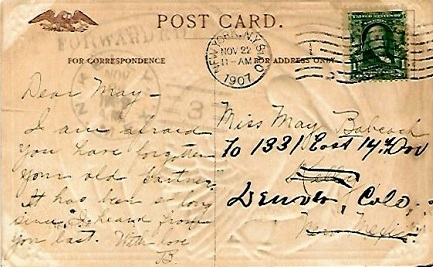 POST CARD.
FORWARDED
FOR CORRESPONDENCE
FOR ADDRESS ONLY
NEW YORK, N.Y. STA. O
NOV 22
11-AM
1907
Dear May-
I am afraid
you have forgotten
your old partner.
It has been so long
since I heard from
you last. With love
B.
Miss May Babcock
To 1331 East 14th Ave
Denver, Colo.
New Mexico